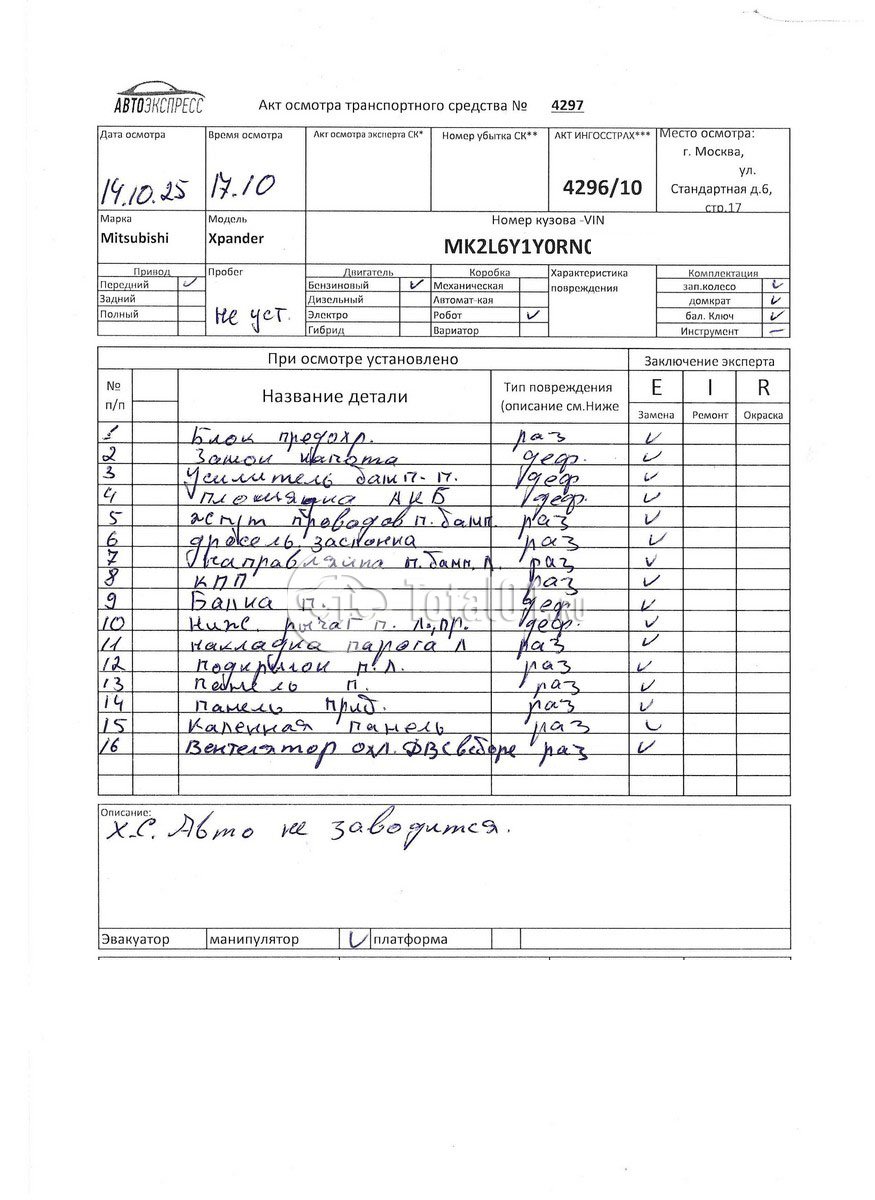 АВТОЭКСПРЕСС
Акт осмотра транспортного средства № 4297
Дата осмотра
Время осмотра
Акт осмотра эксперта СК*
Номер убытка СК**
АКТ ИНГОССТРАХ***
Место осмотра:
г. Москва,
ул.
Стандартная д.6,
стр.17
14.10.25
17.10
4296/10
Марка
Модель
Номер кузова -VIN
Mitsubishi
Xpander
MK2L6Y1Y0RN
Привод
Пробег
Двигатель
Коробка
Характеристика
повреждения
Комплектация
Передний ✓
Бензиновый ✓
Механическая
зап.колесо ✓
Задний
Дизельный
Автомат-кая
домкрат ✓
Полный
не уст.
Электро
Робот ✓
бал. Ключ ✓
Гибрид
Вариатор
Инструмент –
При осмотре установлено
Заключение эксперта
№ п/п
Название детали
Тип повреждения
(описание см.Ниже
E I R
Замена Ремонт Окраска
1 Блок предохр. раз ✓
2 Замок капота деф. ✓
3 Усилитель бамп. п. деф ✓
4 площадка АКБ деф. ✓
5 жгут проводов п. бамп. раз ✓
6 дросель. заслонка раз ✓
7 направляйща п. бамп. Л. раз ✓
8 КПП раз ✓
9 Балка п. деф. ✓
10 Ниж. рычаг п. Л., пр. деф. ✓
11 накладка парога Л раз ✓
12 подкрылок п. Л. раз ✓
13 панель п. раз ✓
14 панель приб. раз ✓
15 Каленная панель раз ✓
16 Вентелятор охл. ДВС в сборе раз ✓
Total01.ru
Описание:
Х.С. Авто не заводится.
Эвакуатор манипулятор ✓ платформа